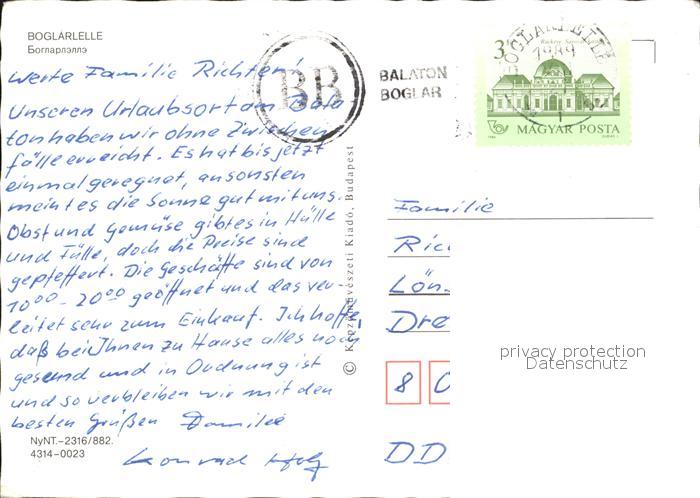 BOGLÁRLELLE
Богларлэллэ
Werte Familie Richter!
Unseren Urlaubsort am Bala
ton haben wir ohne Zwischen
fälle erreicht. Es hat bis jetzt
einmal geregnet, ansonsten
meint es die Sonne gut mit uns.
Obst und Gemüse gibt es in Hülle
und Fülle, doch die Preise sind
gepfeffert. Die Geschäfte sind von
10⁰⁰ - 20⁰⁰ geöffnet und das ver-
leitet sehr zum Einkauf. Ich hoffe
daß bei Ihnen zu Hause alles noch
gesund und in Ordnung ist
und so verbleiben wir mit den
besten Grüßen Familie
Konrad
NyNT.–2316/882.
4314–0023
© Képzőművészeti Kiadó, Budapest
BB
BALATON
BOGLÁR
BOGLÁRLELLE
1989
3
MAGYAR POSTA
Familie
Ric
Lön
Dre
8 0
DD
privacy protection
Datenschutz